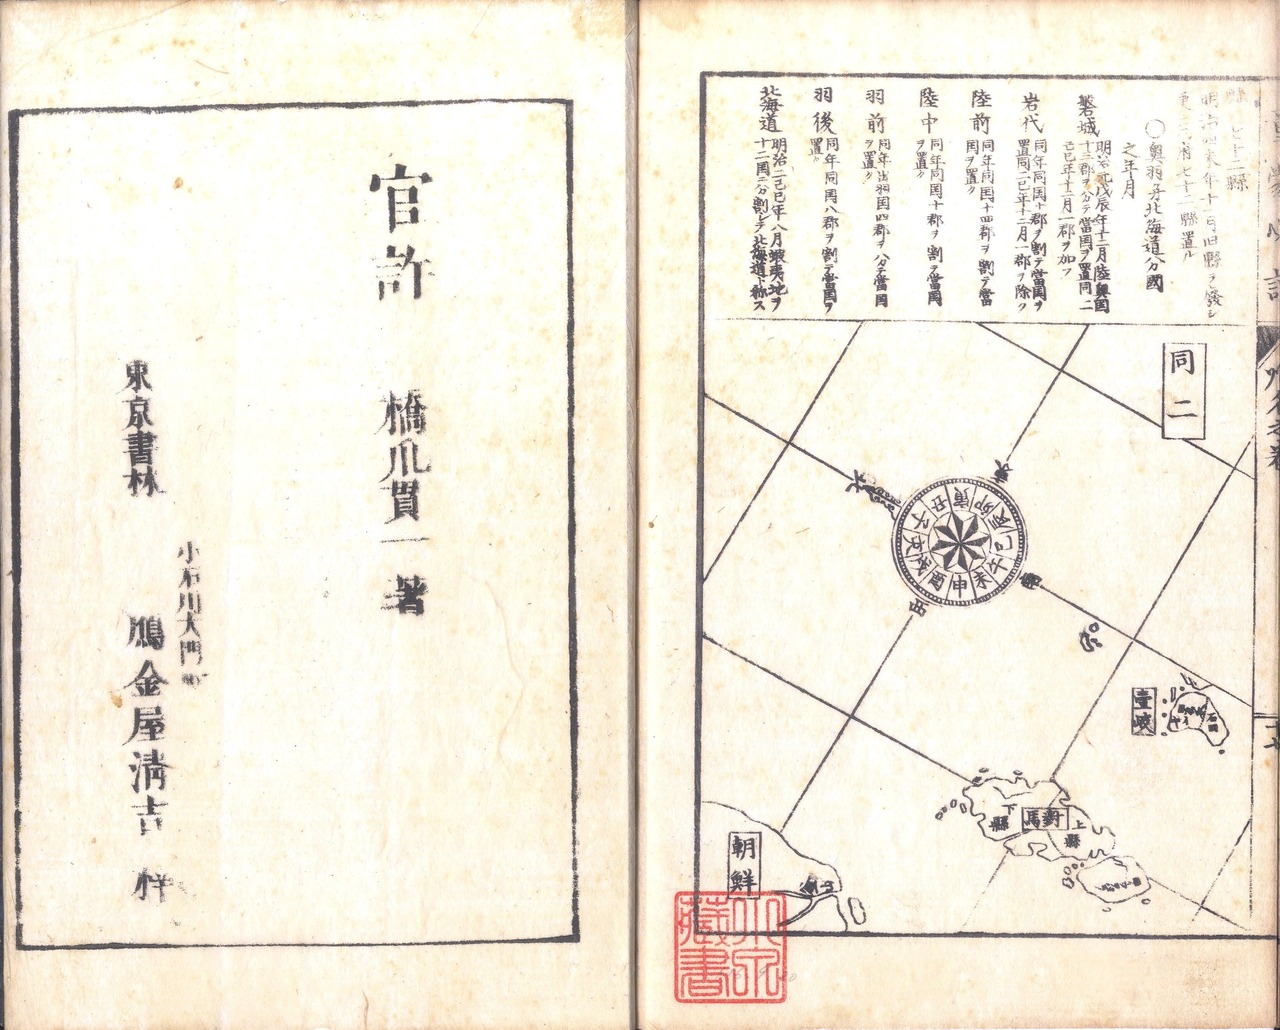 縣 七十二縣
明治四未年十一月旧縣ヲ廢シ
更三府七十二縣置ル
○奥羽弁北海道分國
之年月
磐城
明治元戊辰年十二月陸奥国
十三郡ヲ分テ當国ヲ置同二
己巳年十二月一郡ヲ加フ
岩代
同年同国十郡ヲ割テ當国ヲ
置同二己巳年十二月一郡ヲ除ク
陸前
同年同国十四郡ヲ割テ當
国ヲ置ク
陸中
同年同国十郡ヲ割テ當国
ヲ置ク
羽前
同年出羽国四郡ヲ分テ當国
ヲ置ク
羽後
同年同国八郡ヲ割テ當国ヲ
置ク
北海道
明治二己巳年八月蝦夷地ヲ
十二国ニ分割シテ北海道ト称ス
同二
子
丑
寅
卯
辰
巳
午
未
申
酉
戌
亥
東
北
南
西
壹岐
石田
對馬
上縣
下縣
朝鮮
官許
橋爪貫一著
東京書林
小石川大門町
鴈金屋清吉梓
小汀
藏書